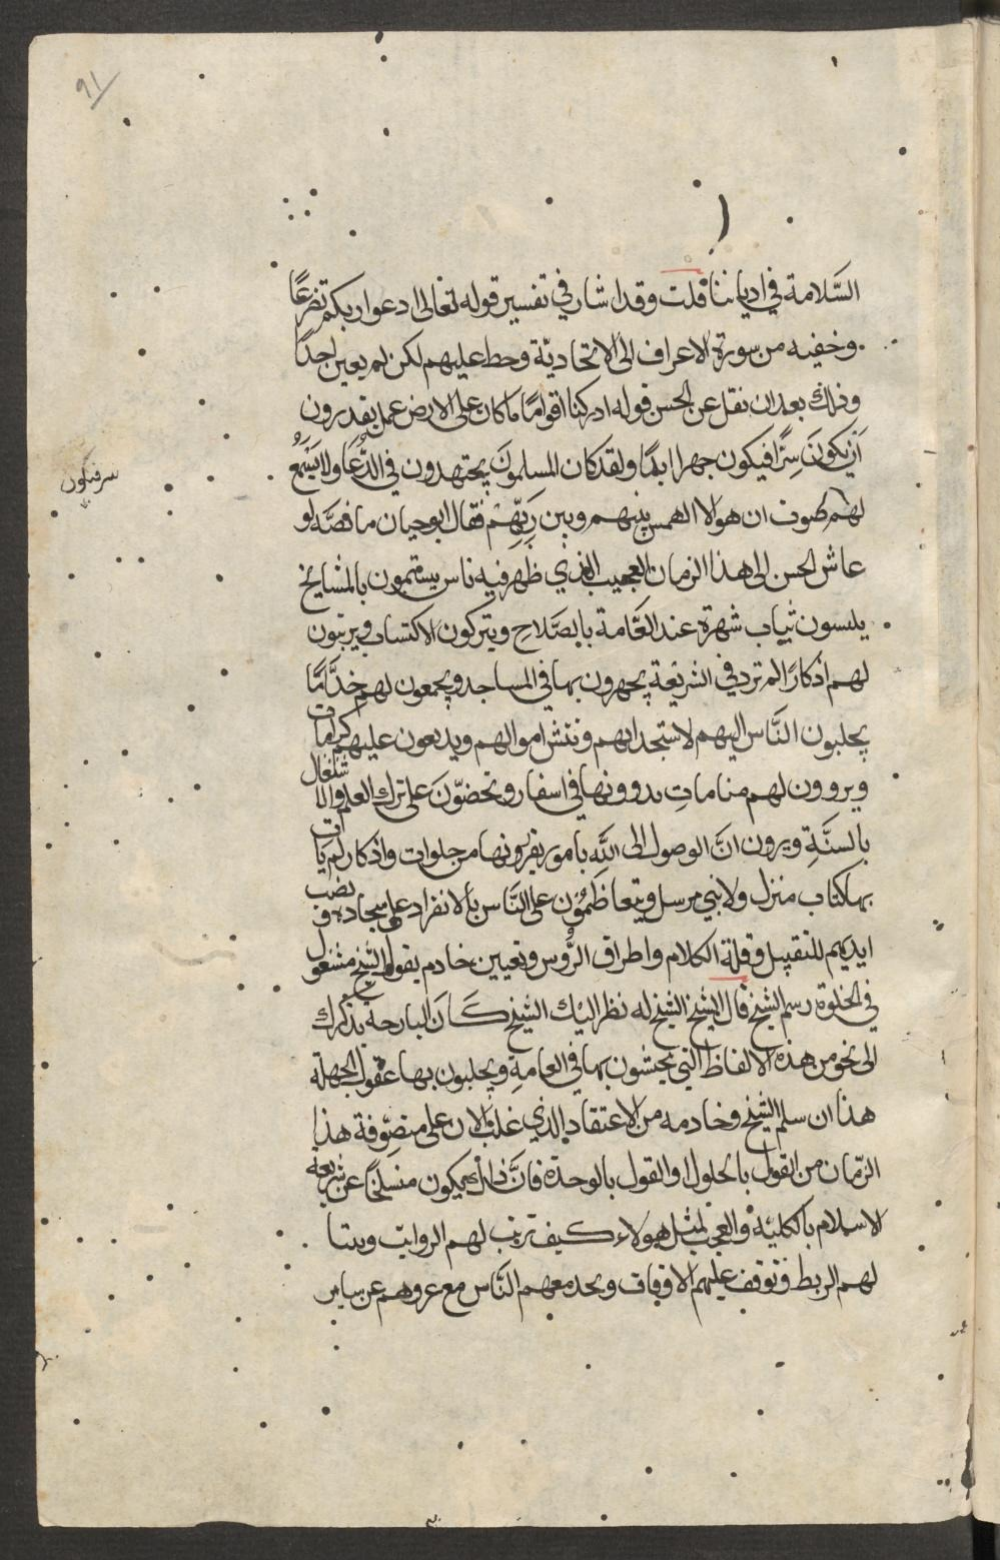 ٩١
السَّلامة في اديا ننا قلت وقد اشار في تفسير قوله تعالى ادعوا ربكم تضرعًا
وخفيه من سورة الاعراف الى الاتحادية وحط عليهم لكن لم يعين احدًا
وذلك بعد ان نقل عن الحسن قوله ادركنا اقوامًا ما كان على الارض عمل يقدرون
ان يكونَ سِرًّا فيكون جهرا ابدًا ولقد كان المسلمون يجتهدون في الدُّعَا ولا يُسْمَعُ
سرفيكون
لهم صوت ان هو الا الهمس بينهم وبين رَبِّهِمْ فقال ابو حيان ما نصَّه لو
عاش الحسن الى هذا الزمان العجيب الذي ظهر فيه ناس يتسمون بالمشايخ
يلبسون ثياب شهرة عند العَّامة بالصَّلاح ويتركون الاكتساب ويرتبون
لهم اذكارًا لم ترد في الشريعة يجهرون بها في المساجد ويجمعون لهم خدَّامًا
يجلبون النَّاس اليهم لاستجدابهم ونتش اموالهم ويديعون عليهم كرامات
ويروون لهم منامات يدوونها في اسفار ويحضوّن على ترك العلم والاشتغال
بالسنَّةِ ويرون انَّ الوصول الى الله بامور يقرونها من خلوات واذكار لم يات
بها كتاب منزل ولا نبي مرسل ويتعاظَمُوْن على النَّاس بالانفراد على سجادة ونصب
ايديهم للتقبيل وقلة الكلام واطراق الرُّوس وتعيين خادم يقول الشيخ مشغول
في الخلوة رسم الشيخ قال الشيخ الشيخ له نظر اليك الشيخ كَانَ البارحة يذكرك
الى نحو من هذه الالفاظ التي يحشون بها في العامةِ ويجلبون بها عقول الجهلة
هذا ان سلم الشيخ وخادمه من الاعتقاد الذي غلب الان على متصوفة هذا
الزَّمان من القول بالحلول او القول بالوحدة فانَّ ذلك يكون منسلخًا عن شريعة
الاسلام بالكلية والعجب لمثل هولاء كيف ترتب لهم الرواتب وتبنا
لهم الربط وتوقف عليهم الاوقاف ويخدمهم النَّاس مع عروهم عن ساير